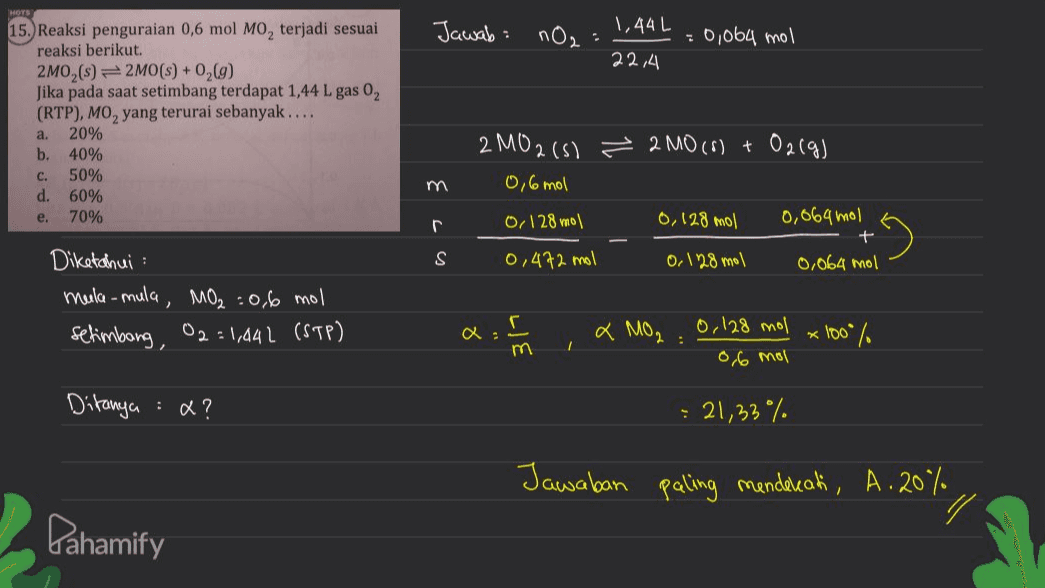 HOTS
15. Reaksi penguraian 0,6 mol MO₂ terjadi sesuai
reaksi berikut.
2MO₂(s) ⇌ 2MO(s) + O₂(g)
Jika pada saat setimbang terdapat 1,44 L gas O₂
(RTP), MO₂ yang terurai sebanyak ....
a. 20%
b. 40%
c. 50%
d. 60%
e. 70%
Diketahui :
mula-mula, MO₂ : 0,6 mol
setimbang, O₂ = 1,44 L (STP)
Ditanya : α ?
Jawab : nO₂ : 1,44 L / 22,4 = 0,064 mol
2 MO₂(s) ⇌ 2 MO(s) + O₂(g)
m 0,6 mol
r 0,128 mol 0,128 mol 0,064 mol
s 0,472 mol 0,128 mol 0,064 mol
α = r / m , α MO₂ : 0,128 mol / 0,6 mol × 100%
= 21,33%
Jawaban paling mendekati, A. 20%
Pahamify